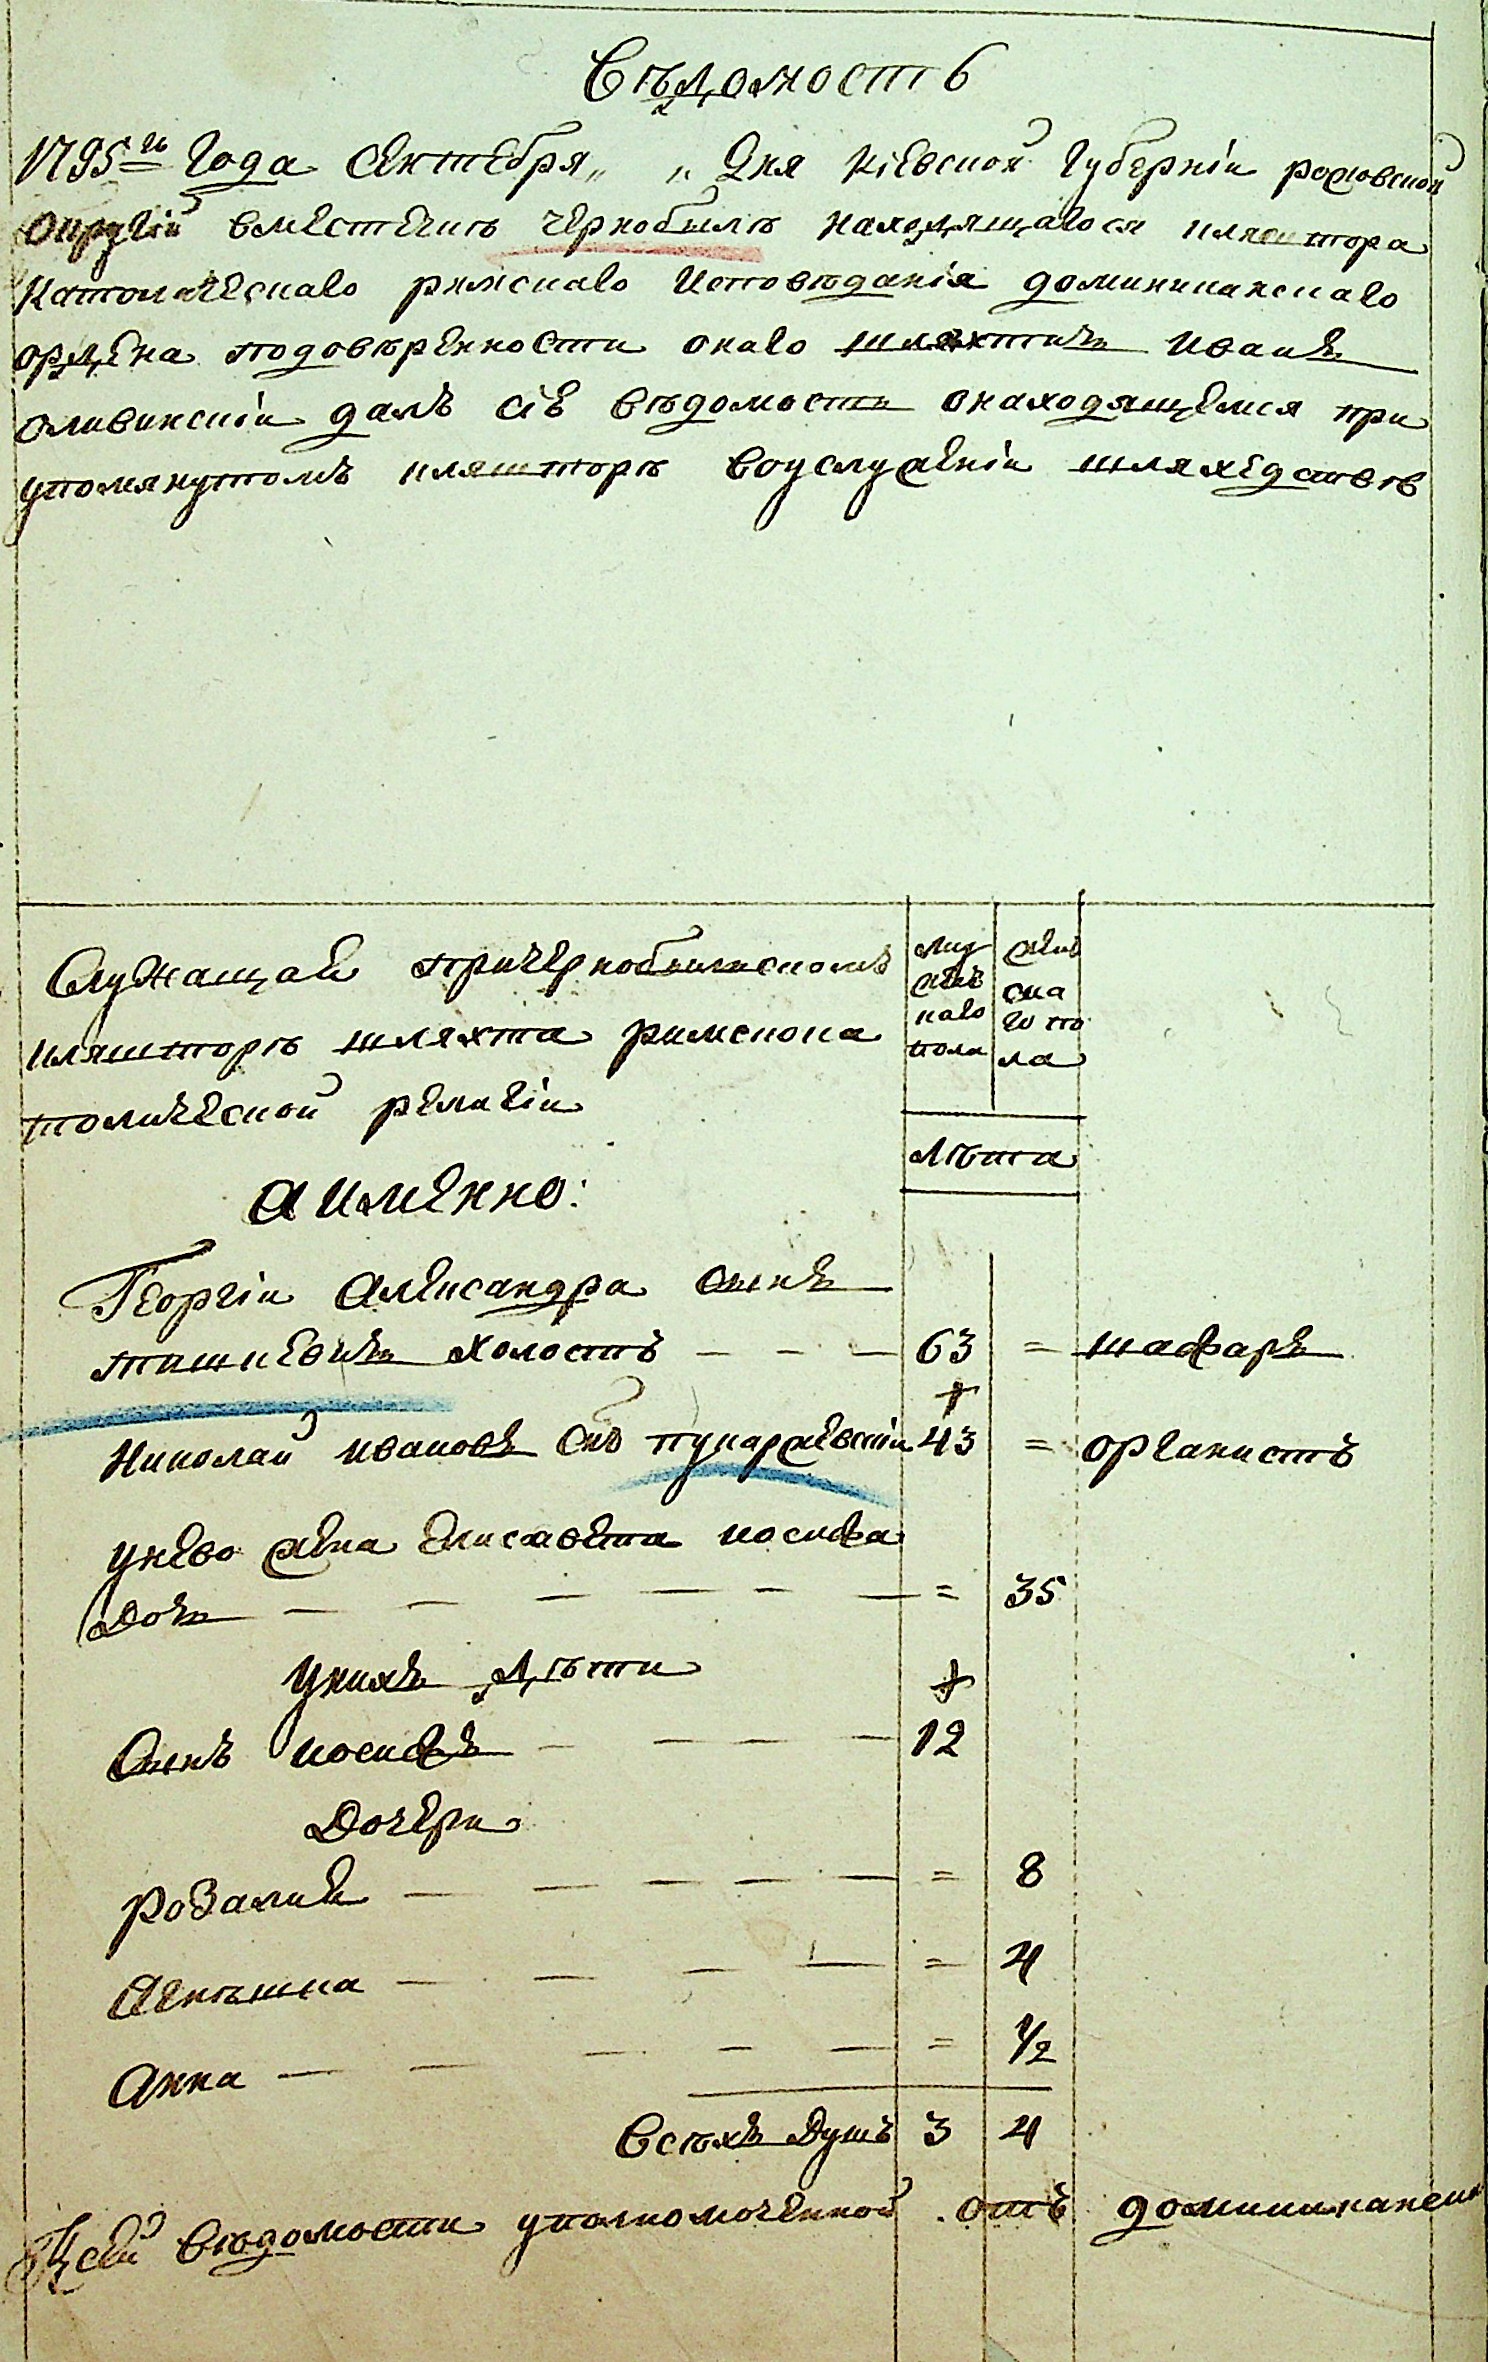 Вѣдомость
1795го года октебря „ „ Дня кіевской губерніи радовской
округіи вместечкѣ чернобилѣ находящагося кляштора
католическаго римскаго исповѣданія доминиканскаго
ордена подовѣренности онаго шляхтичъ иванъ
оливинскіи далъ сіе вѣдомости онаходящемся при
упомянутомъ кляшторѣ воуслуженіи шляхедствѣ
Служащае причернобилискомъ
кляшторѣ шляхта римскока
толической религіи
муж
женъ
каго
пола
жен
ска
го по
ла
Лѣта
а именно:
Георгіи Александра сынъ
тишкевичъ холостъ — — — 63 = шафаръ
+
Николай ивановъ снъ пукаржевскіи 43 = органистъ
унево жена елисавета иосифа
Дочь — — — — — — = 35
унихъ дѣти
+
Сынъ иосифъ — — — — 12
Дочери
Розалия — — — — — — = 8
Агнѣшка — — — — = 4
Анна — — — — — = 1/2
Всѣхъ Душъ 3 4
К сей вѣдомости уполномоченной отъ доминикански